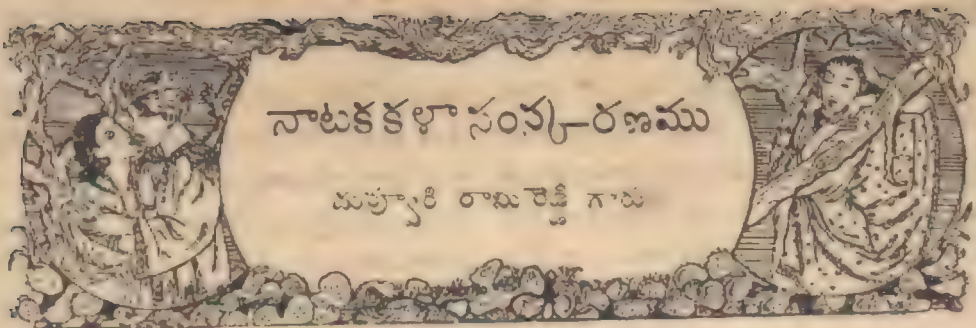 నాటకకళా సంస్కరణము
దువ్వూరి రామి రెడ్డి గారు